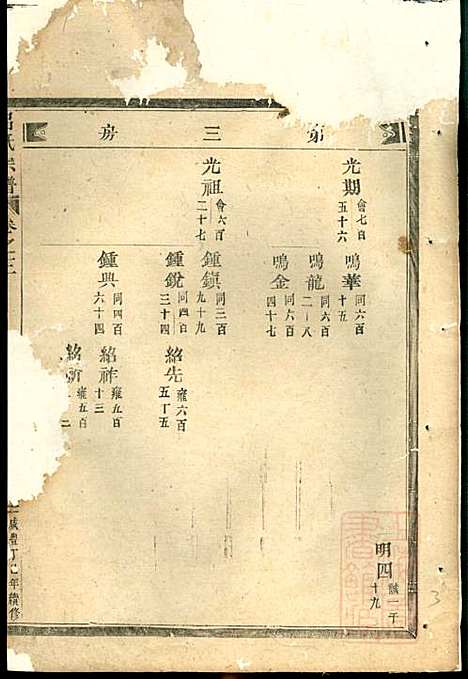 第三房
光期 會七百五十六
鳴華 同六百十五
鳴龍 同六百二一八
鳴金 同六百四十七
光祖 會六百二十七
鍾鎮 同三百九十九
鍾銳 同四百三十四
紹先 雍六百五丁五
鍾興 同四百六十四
紹祚 雍五百十三
紹新 雍五百二
明四 誠一千十九
呂氏宗譜
卷之二
咸豐丁巳年續修
3